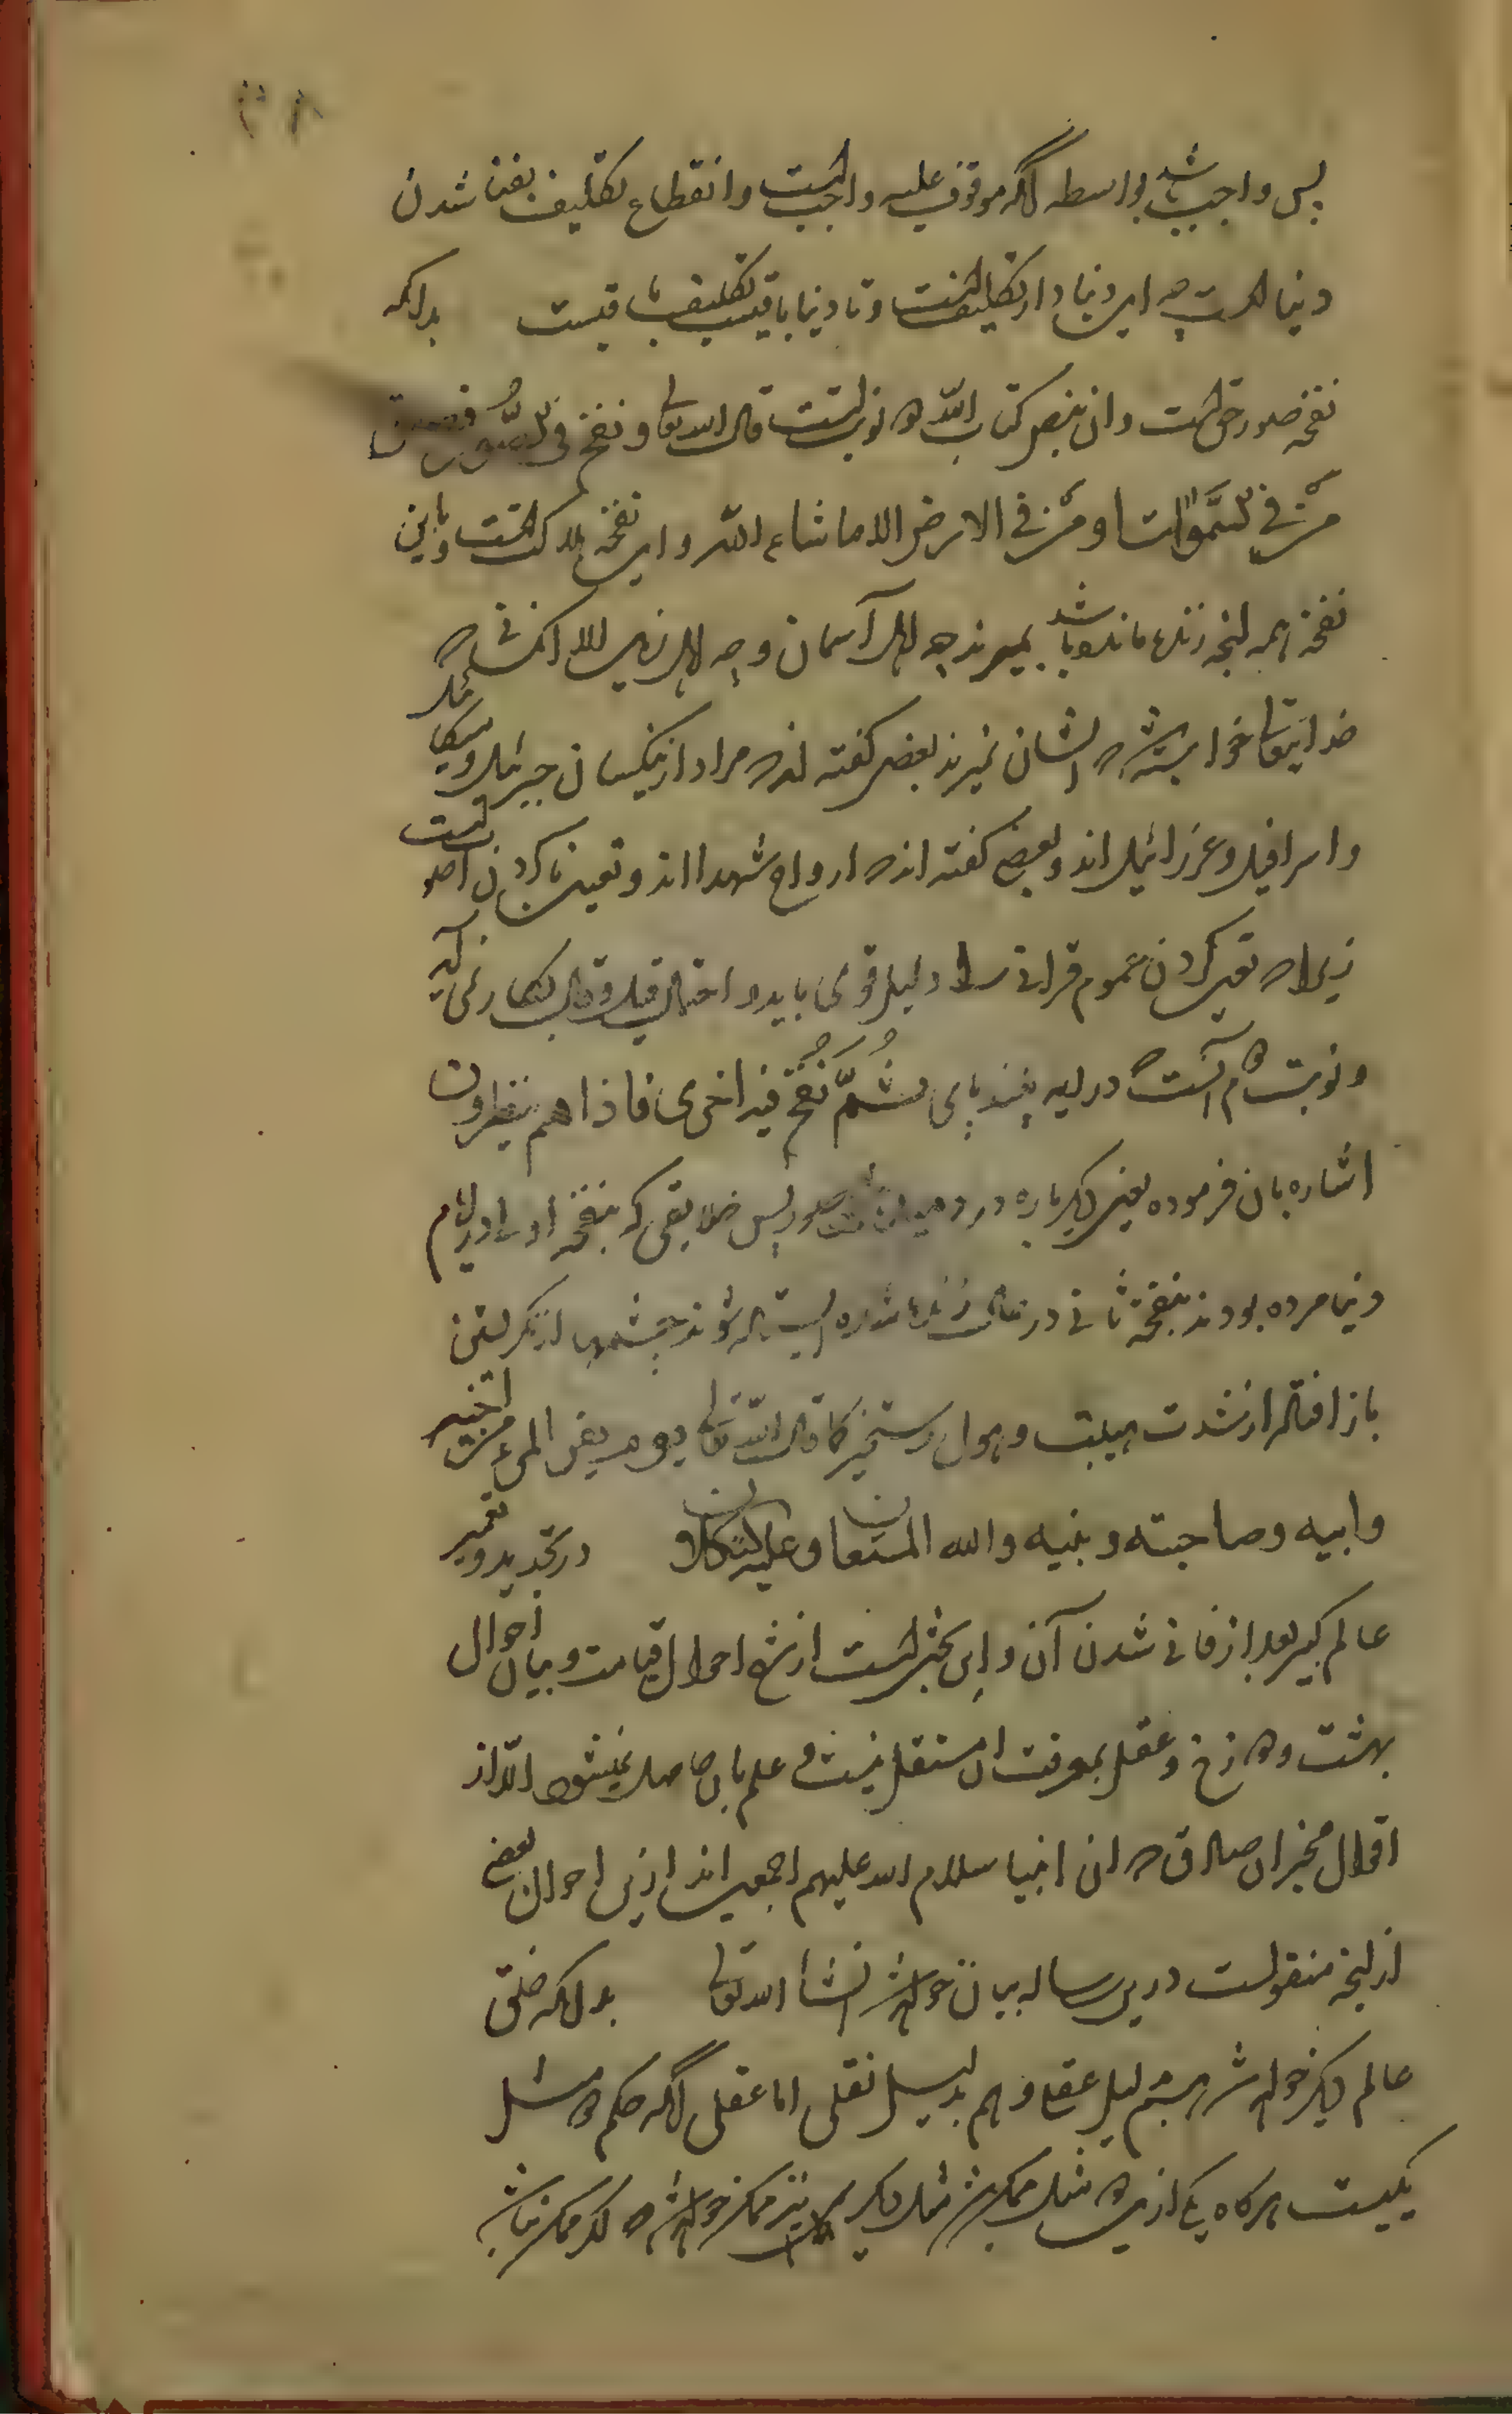 پس واجب باشد بواسطه آنکه موقوف علیه واجبست وانقطاع تکلیف بفنا شدن
دنیاست چه این دنیا دار تکلیفست و تا دنیا باقیست تکلیف باقیست بدانکه
نفخه صور حق است وان بنص کتاب الله دو نوبتست قال الله تعالی ونفخ فی الصور فصعق
من فی السموات ومن فی الارض الا ما شاء الله واین نفخه هلاکتست وباین
نفخه همه آنچه زنده مانده باشد بمیرند چه اهل آسمان وچه اهل زمین الا آنکسانی که
خدایتعالی خواسته باشد که ایشان نمیرند بعضی گفته اند که مراد ازینکسان جبرئیل ومیکائیل
واسرافیل وعزرائیل اند وبعضی گفته اند که ارواح شهدا اند وتعین ناکردن اصوبست
زیرا که تعین کردن عموم قرانی را دلیل قوی باید و احتمال قیل وقال بکار نمی آید
ونوبت دوم آنست که در آیه پسند پای ثُمَّ نُفِخَ فیه اخری فاذا هم ینظرون
اشاره بان فرموده یعنی دیگرباره در دمیده صور پس خلایقی که بنفخه اولی در ایام
دنیا مرده بودند بنفخه ثانی در حال زنده شده ایستاده شوند چشمها از نگرستن
باز افتاده از شدت هیبت وهول رستخیز کما قال الله تعالی یوم یفر المرء من اخیه
وابیه وصاحبته وبنیه والله المستعان وعلیه التکلان در تجدید وتعمیر
عالم کبیر بعد از فانی شدن آن واین بحثیست از شرح احوال قیامت وبیان احوال
بهشت ودوزخ وعقل بمعرفت ان مستقل نیست و علم بان حاصل نمیشود الا از
اقوال مخبران صادق که ان انبیا سلام الله علیهم اجمعین اند ازین احوال بعضی
از آنچه منقولست درین رساله بیان خواهد شد انشا الله تعالی بدانکه خلق
عالم دیگر خواهد شد هم بدلیل عقلی وهم بدلیل نقلی اما عقلی آنکه حکم دو مثل
یکیست هرگاه یکی ازین دو مثل ممکن باشد مثل دیگر نیز ممکن خواهد شد که اگر ممکن نباشد